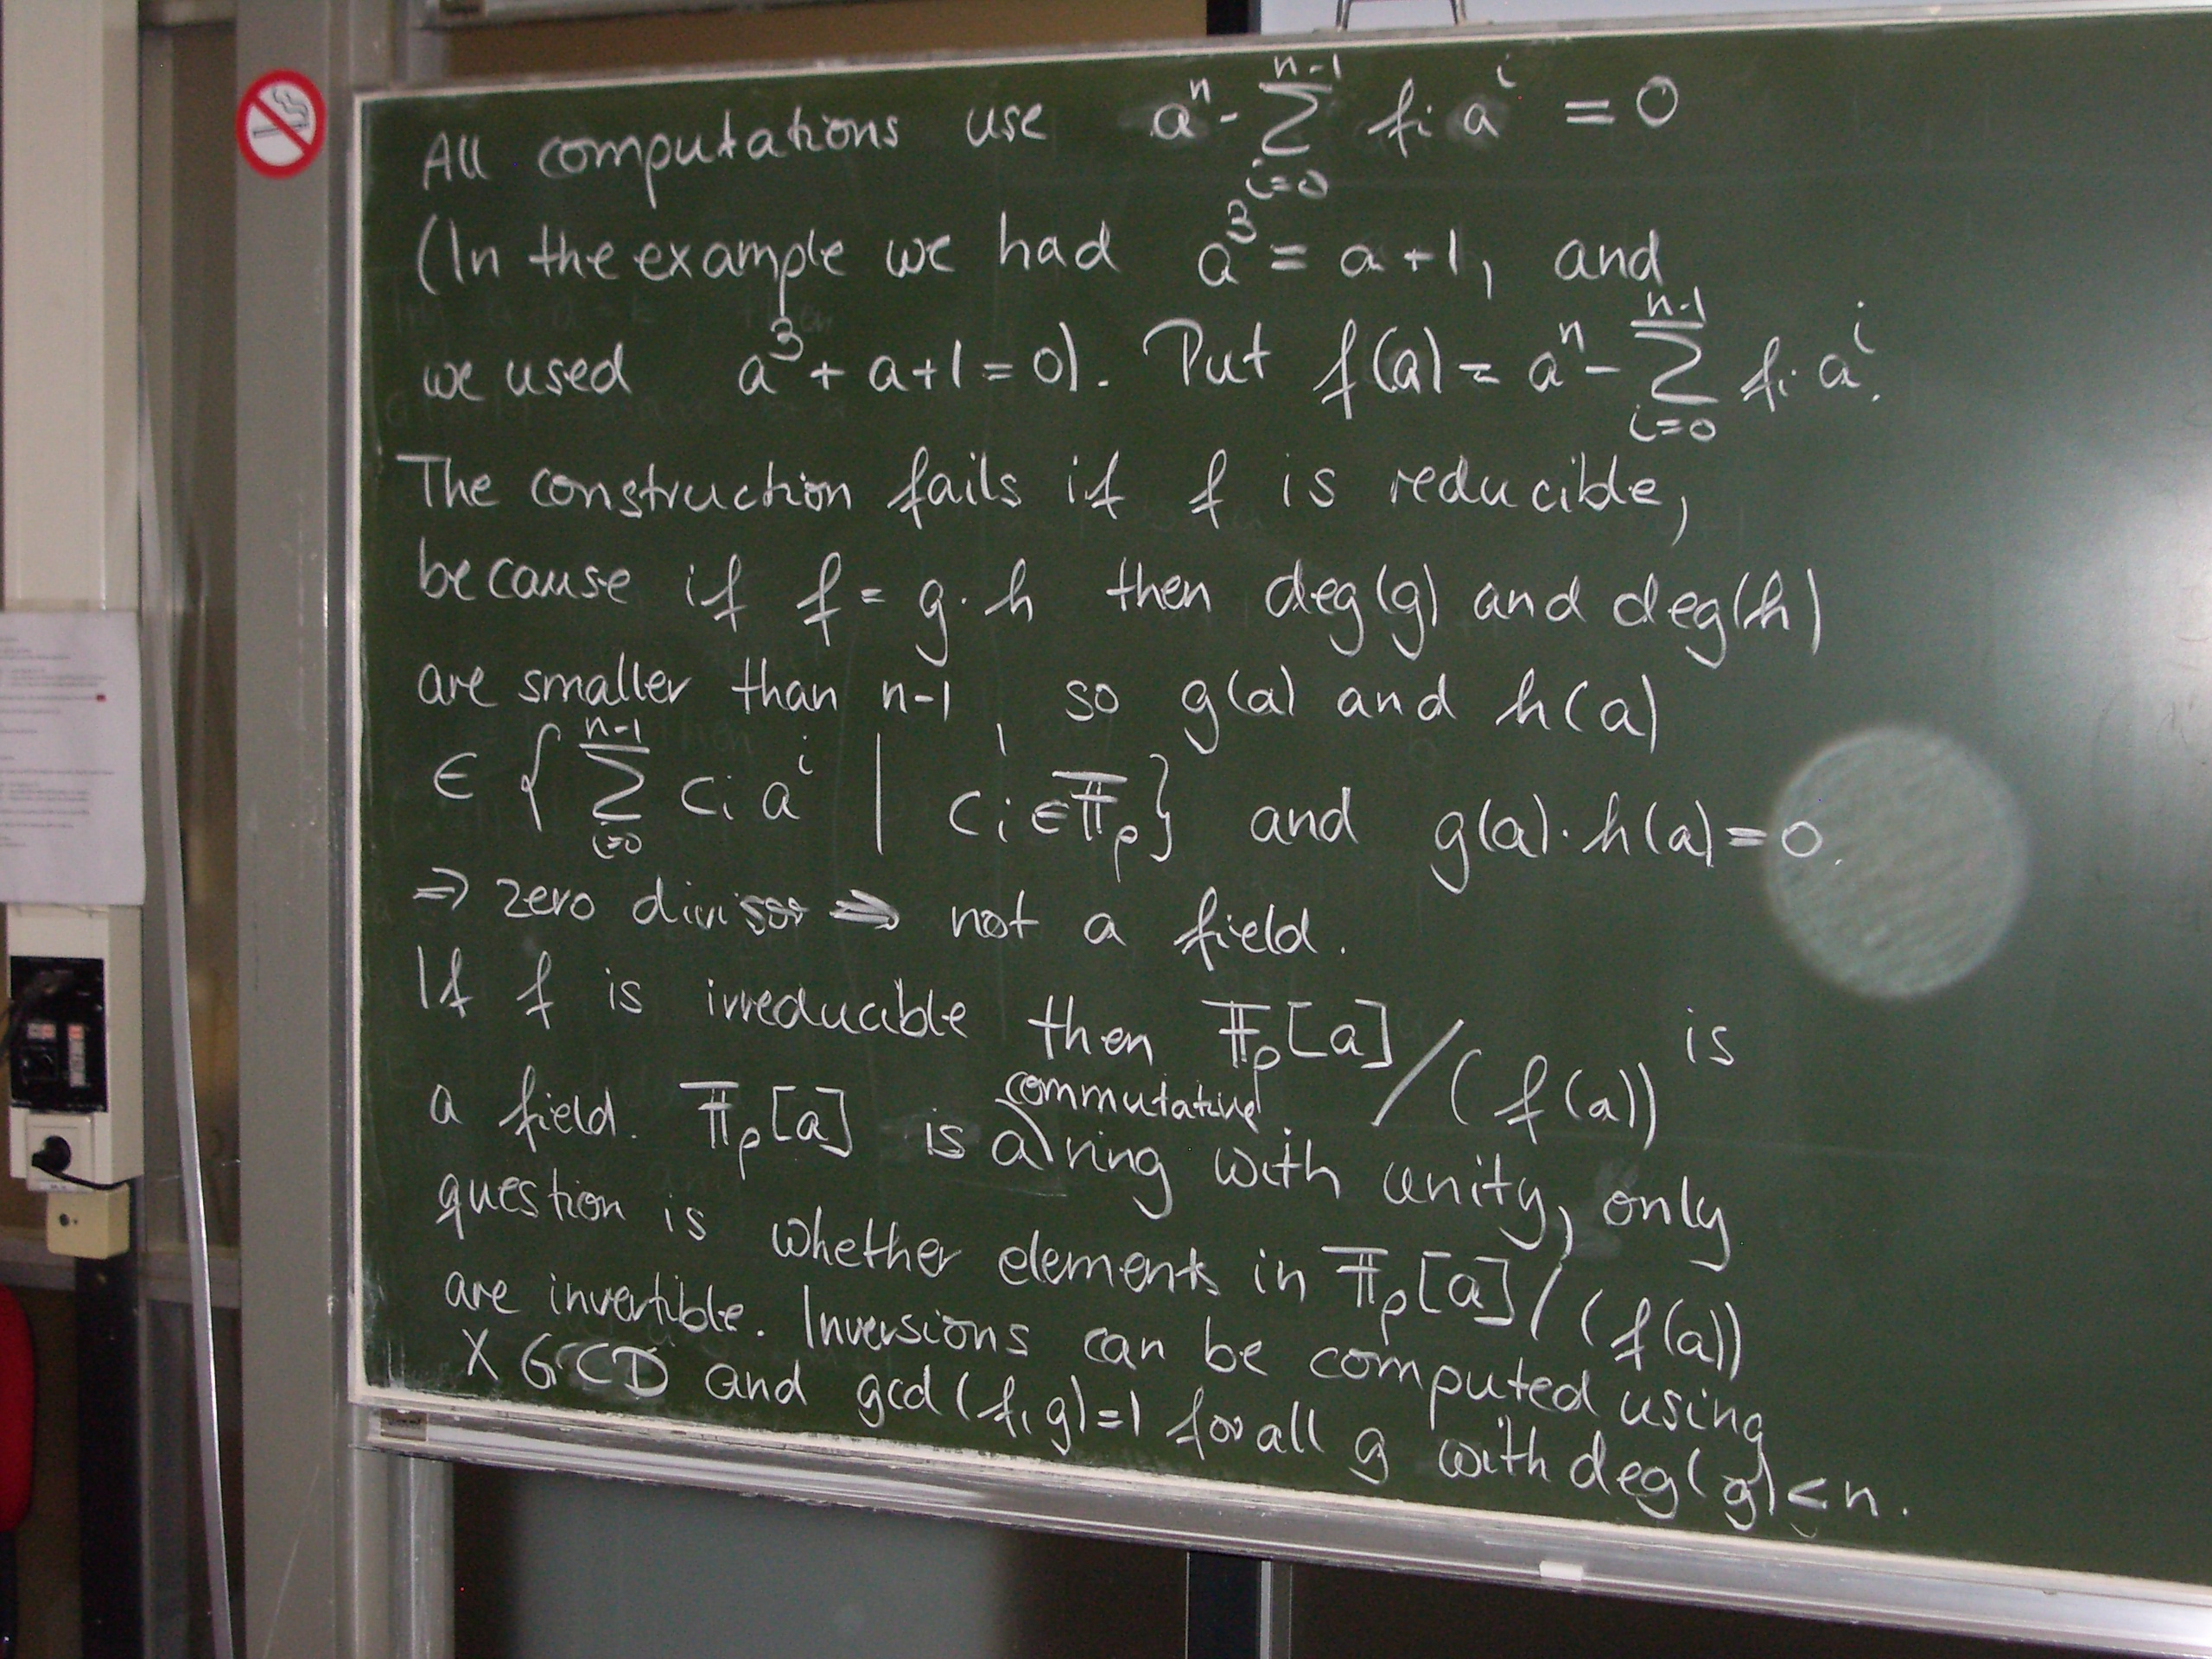 All computations use aⁿ - ∑_{i=0}^{n-1} fᵢ aⁱ = 0
(In the example we had a³ = a+1, and
we used a³ + a+1 = 0). Put f(a) = aⁿ - ∑_{i=0}^{n-1} fᵢ aⁱ.
The construction fails if f is reducible,
because if f = g·h then deg(g) and deg(h)
are smaller than n-1, so g(a) and h(a)
∈ { ∑_{i=0}^{n-1} cᵢ aⁱ | cᵢ ∈ 𝔽ₚ } and g(a)·h(a) = 0.
⇒ zero divisor ⇒ not a field.
If f is irreducible then 𝔽ₚ[a]/(f(a)) is
a field. 𝔽ₚ[a] is a commutative ring with unity, only
question is whether elements in 𝔽ₚ[a]/(f(a))
are invertible. Inversions can be computed using
XGCD and gcd(f,g)=1 for all g with deg(g)<n.